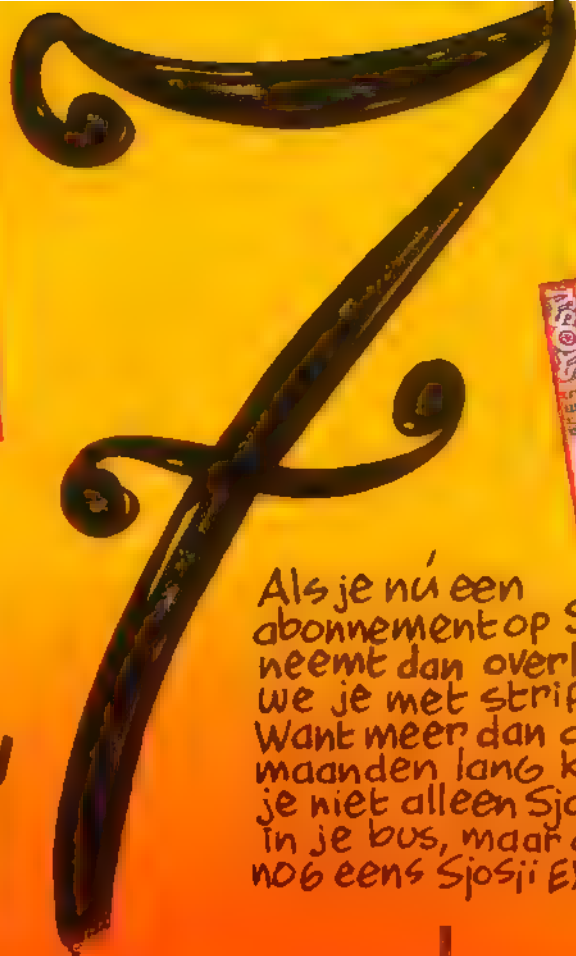 7
Als je nú een
abonnement op
neemt dan
we je met
Want meer dan
maanden lang
je niet alleen
in je bus, maar
nog eens Sjosji